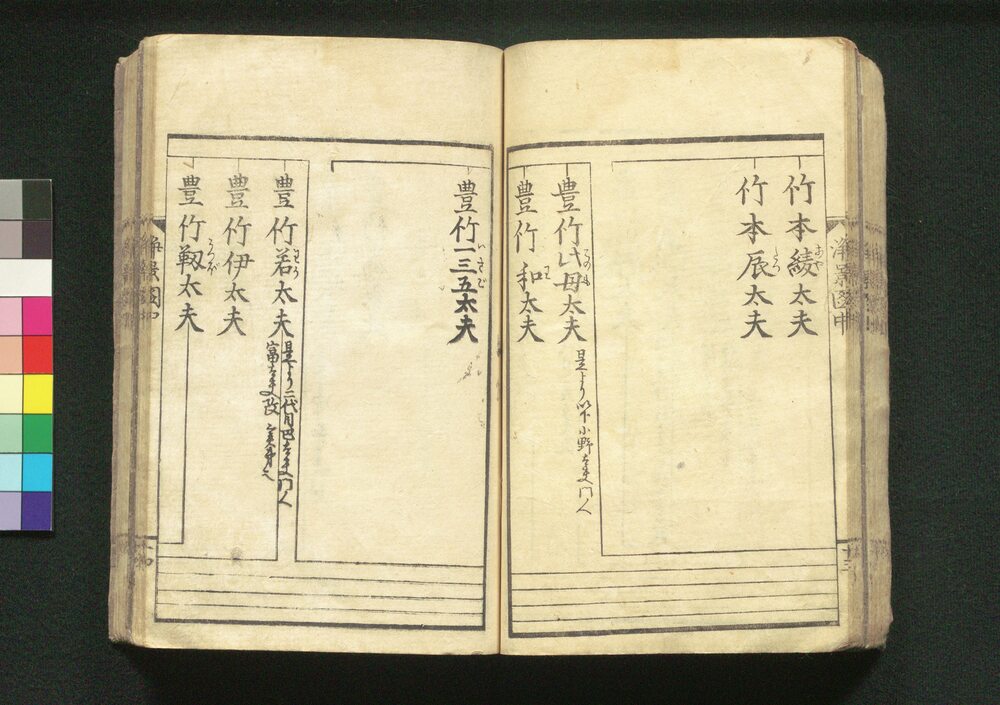 竹本綾太夫
竹本辰太夫
豊竹此母太夫
是より以下小野太夫門人
豊竹和太夫
豊竹一三五太夫
豊竹若太夫
是より二代目巴太夫門人
富太夫改
豊竹伊太夫
豊竹靱太夫